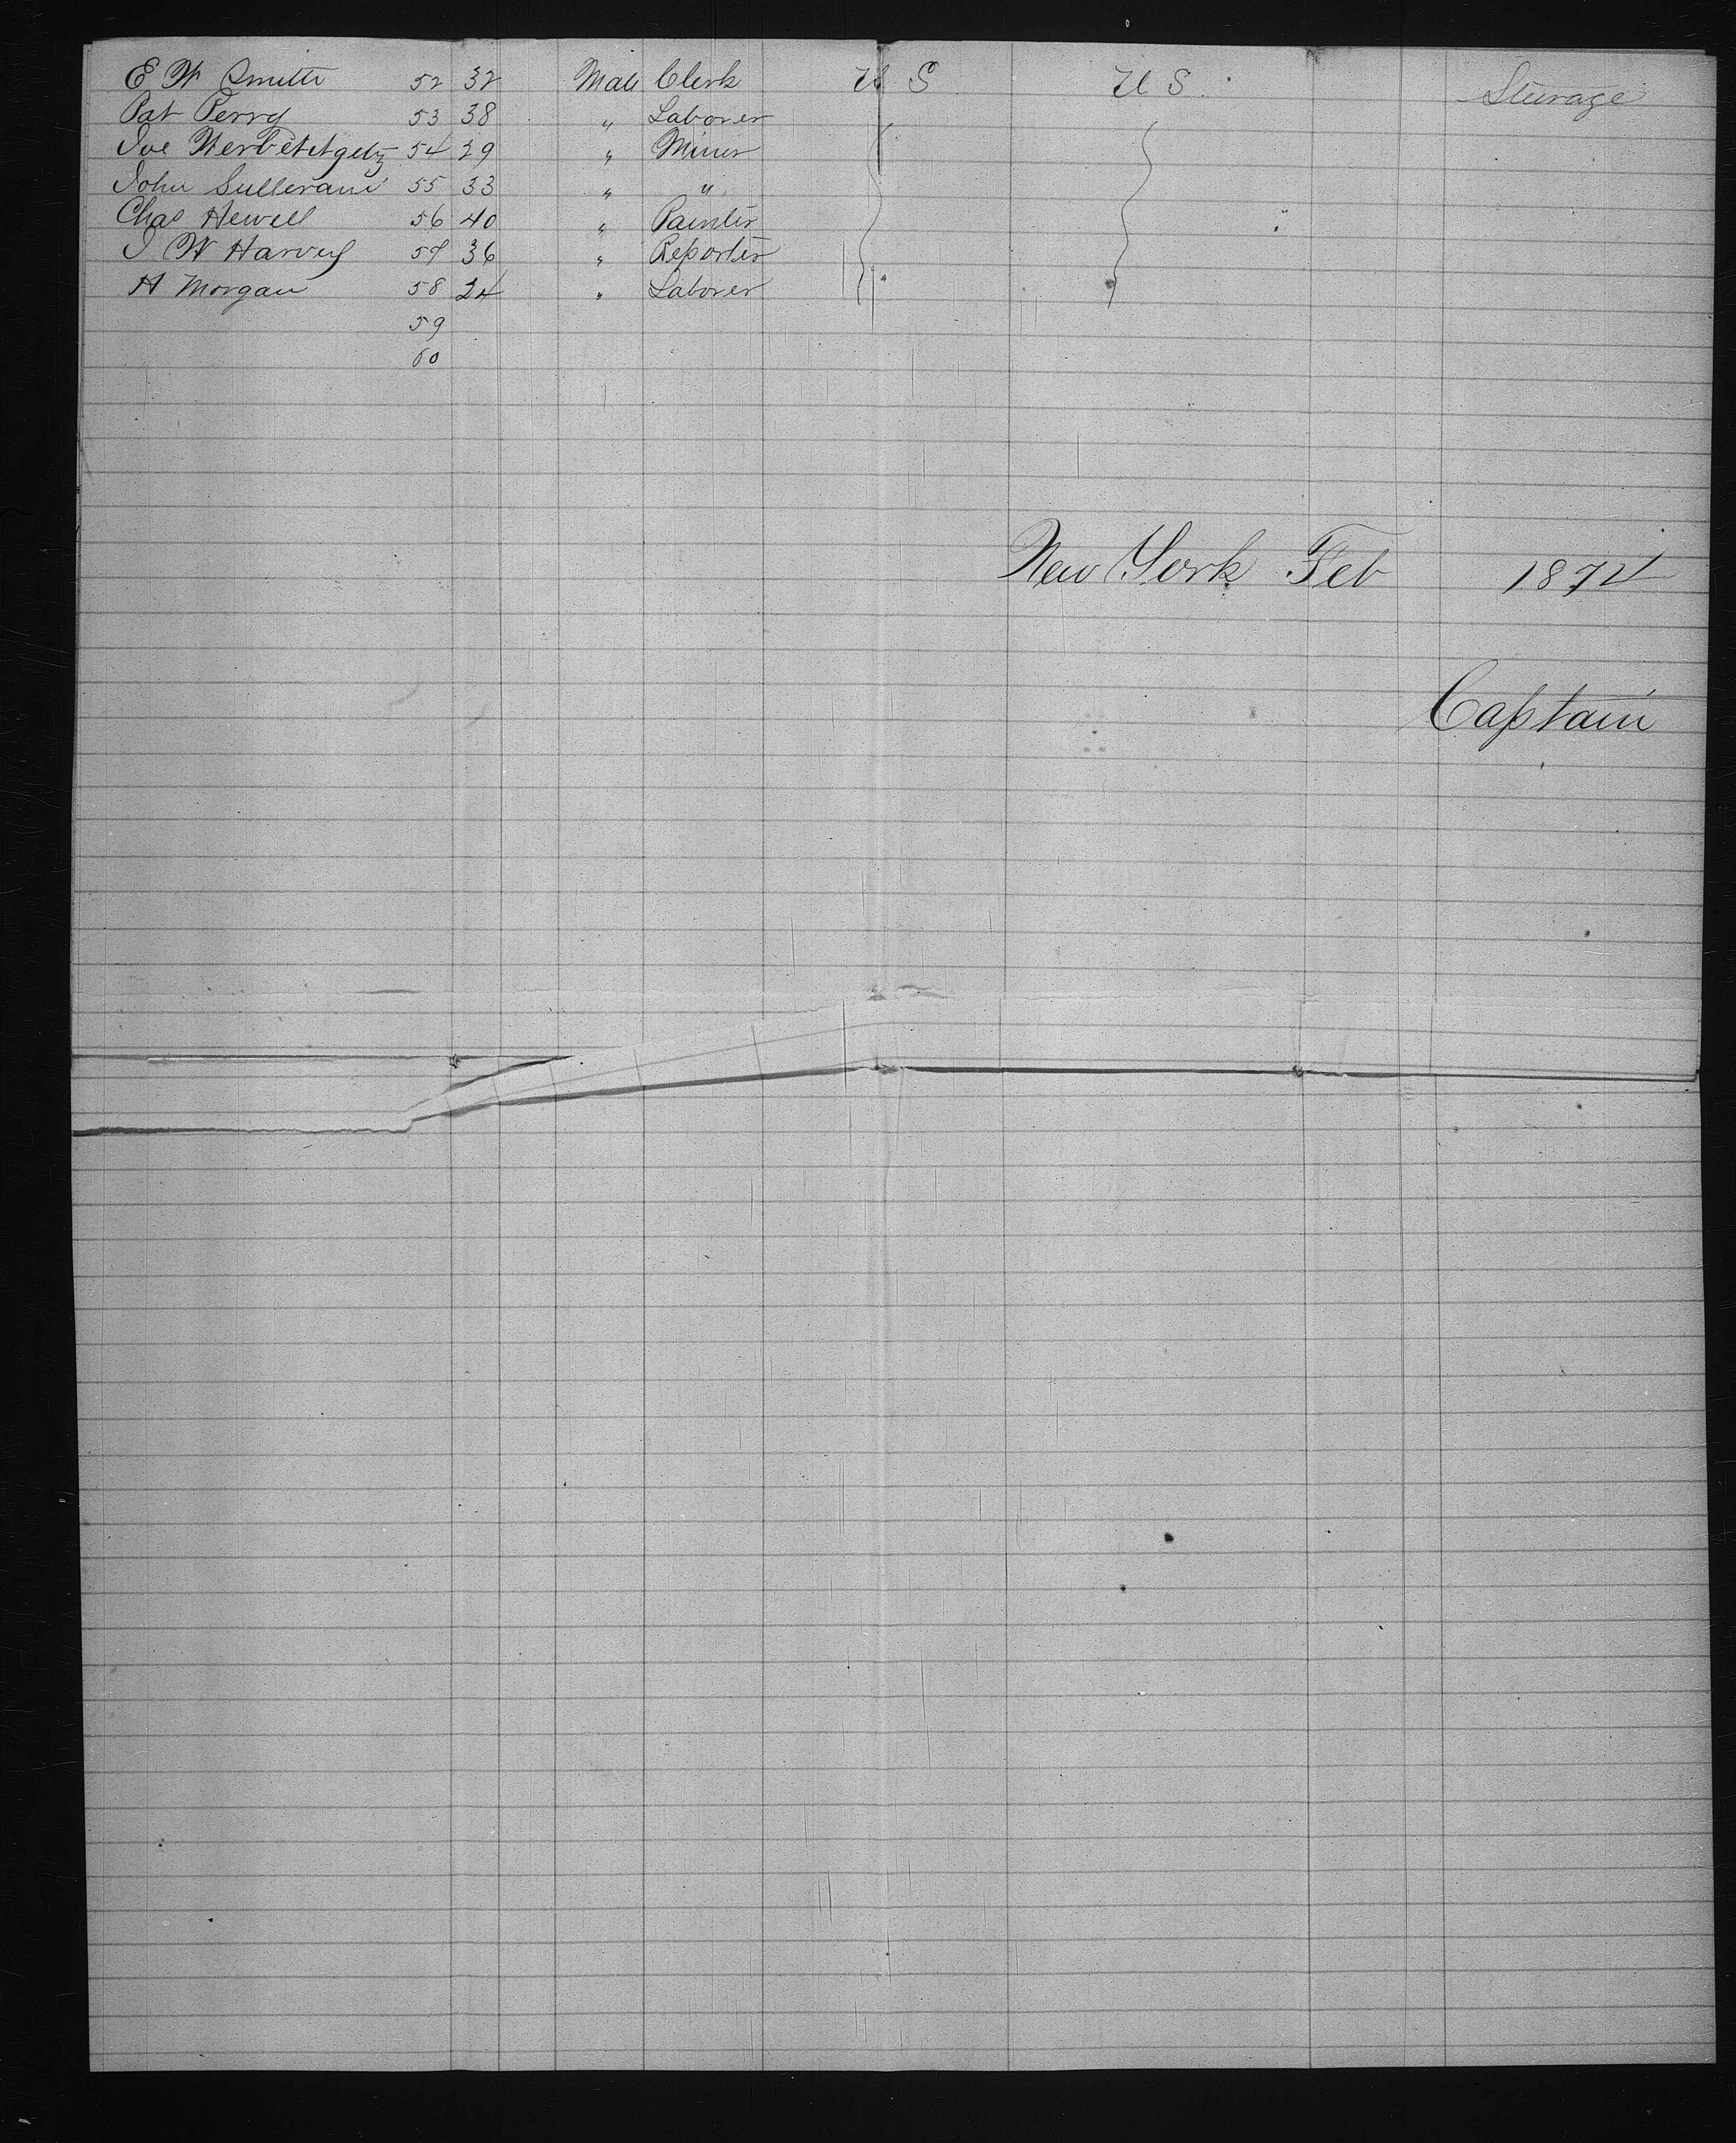 E W Smith 52 32 Male Clerk U S U S. Steerage
Pat Perry 53 38 " Laborer
Joe 54 29 " Miner
John Sullivan 55 33 " "
Chas Hewell 56 40 " Painter
J W Harvey 57 36 " Reporter
H Morgan 58 24 " Laborer
59
60
New York Feb 1872
Captain